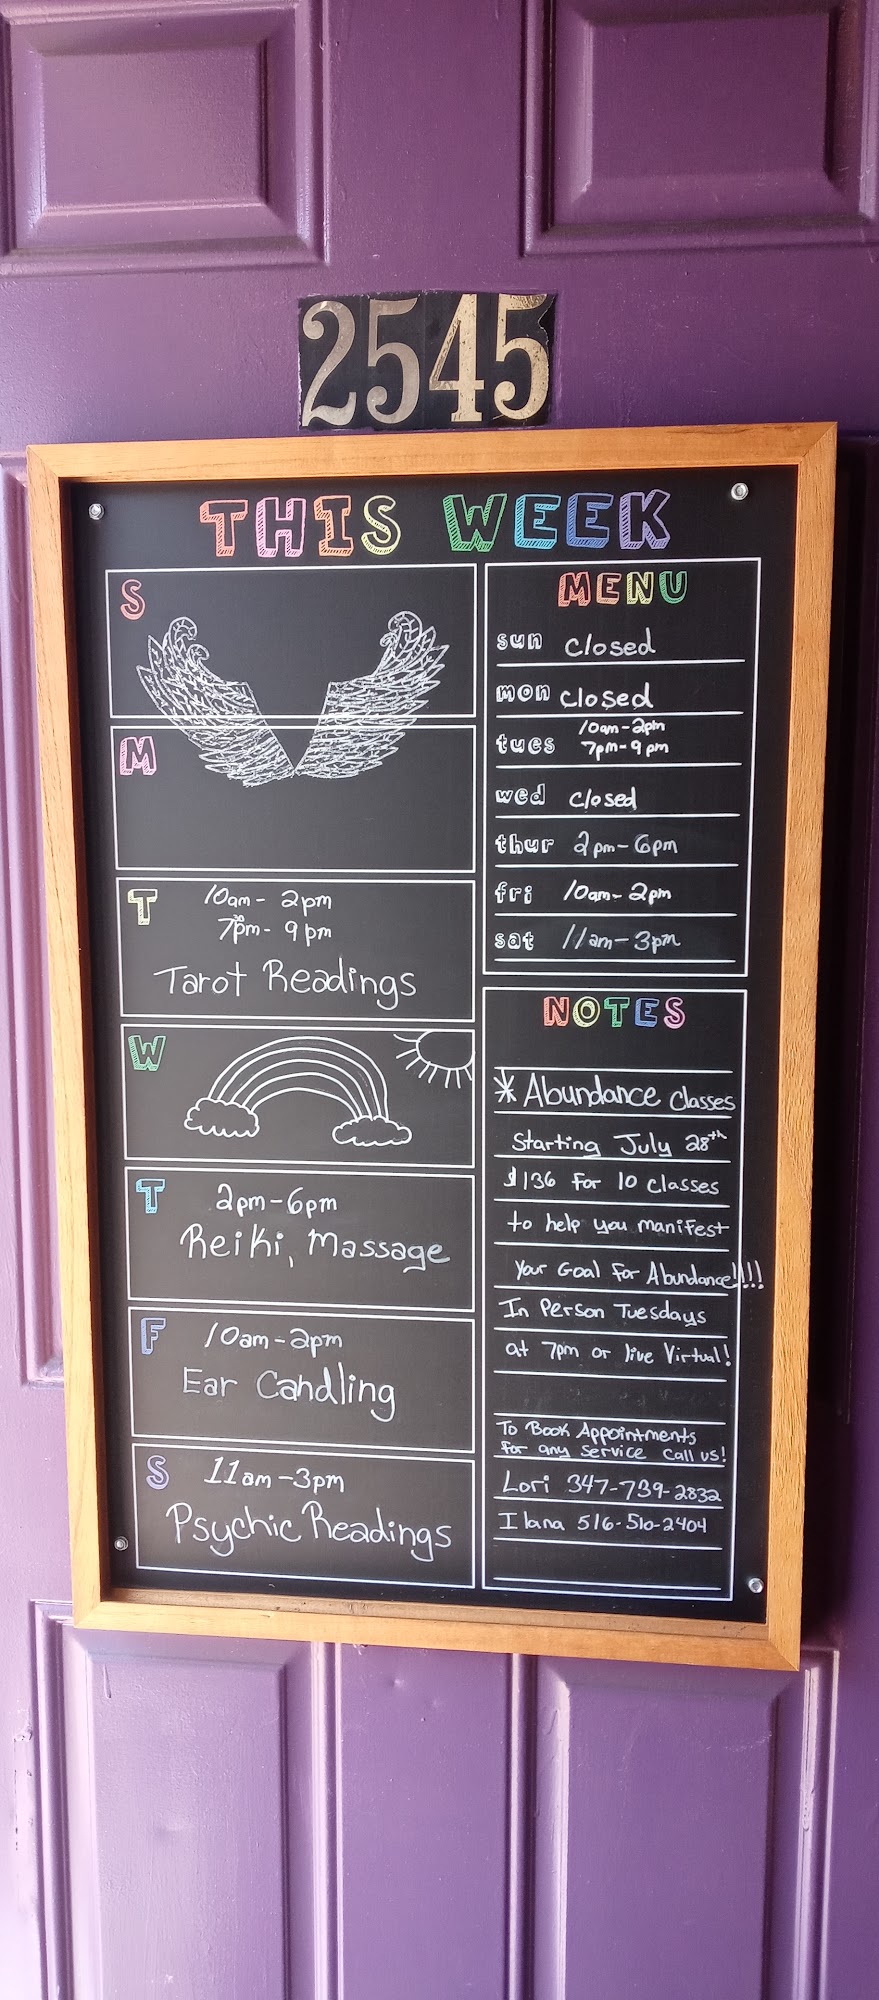 2545
THIS WEEK
S
M
T 10am - 2pm
7pm - 9pm
Tarot Readings
W
T 2pm-6pm
Reiki, Massage
F 10am-2pm
Ear Candling
S 11am-3pm
Psychic Readings
MENU
sun closed
mon closed
tues 10am-2pm
7pm-9pm
wed closed
thur 2pm-6pm
fri 10am-2pm
sat 11am-3pm
NOTES
* Abundance classes
Starting July 28th
$136 for 10 classes
to help you manifest
Your Goal for Abundance!!!!
In Person Tuesdays
at 7pm or live Virtual!
To Book Appointments
for any service call us!
Lori 347-739-2832
Ilana 516-510-2404